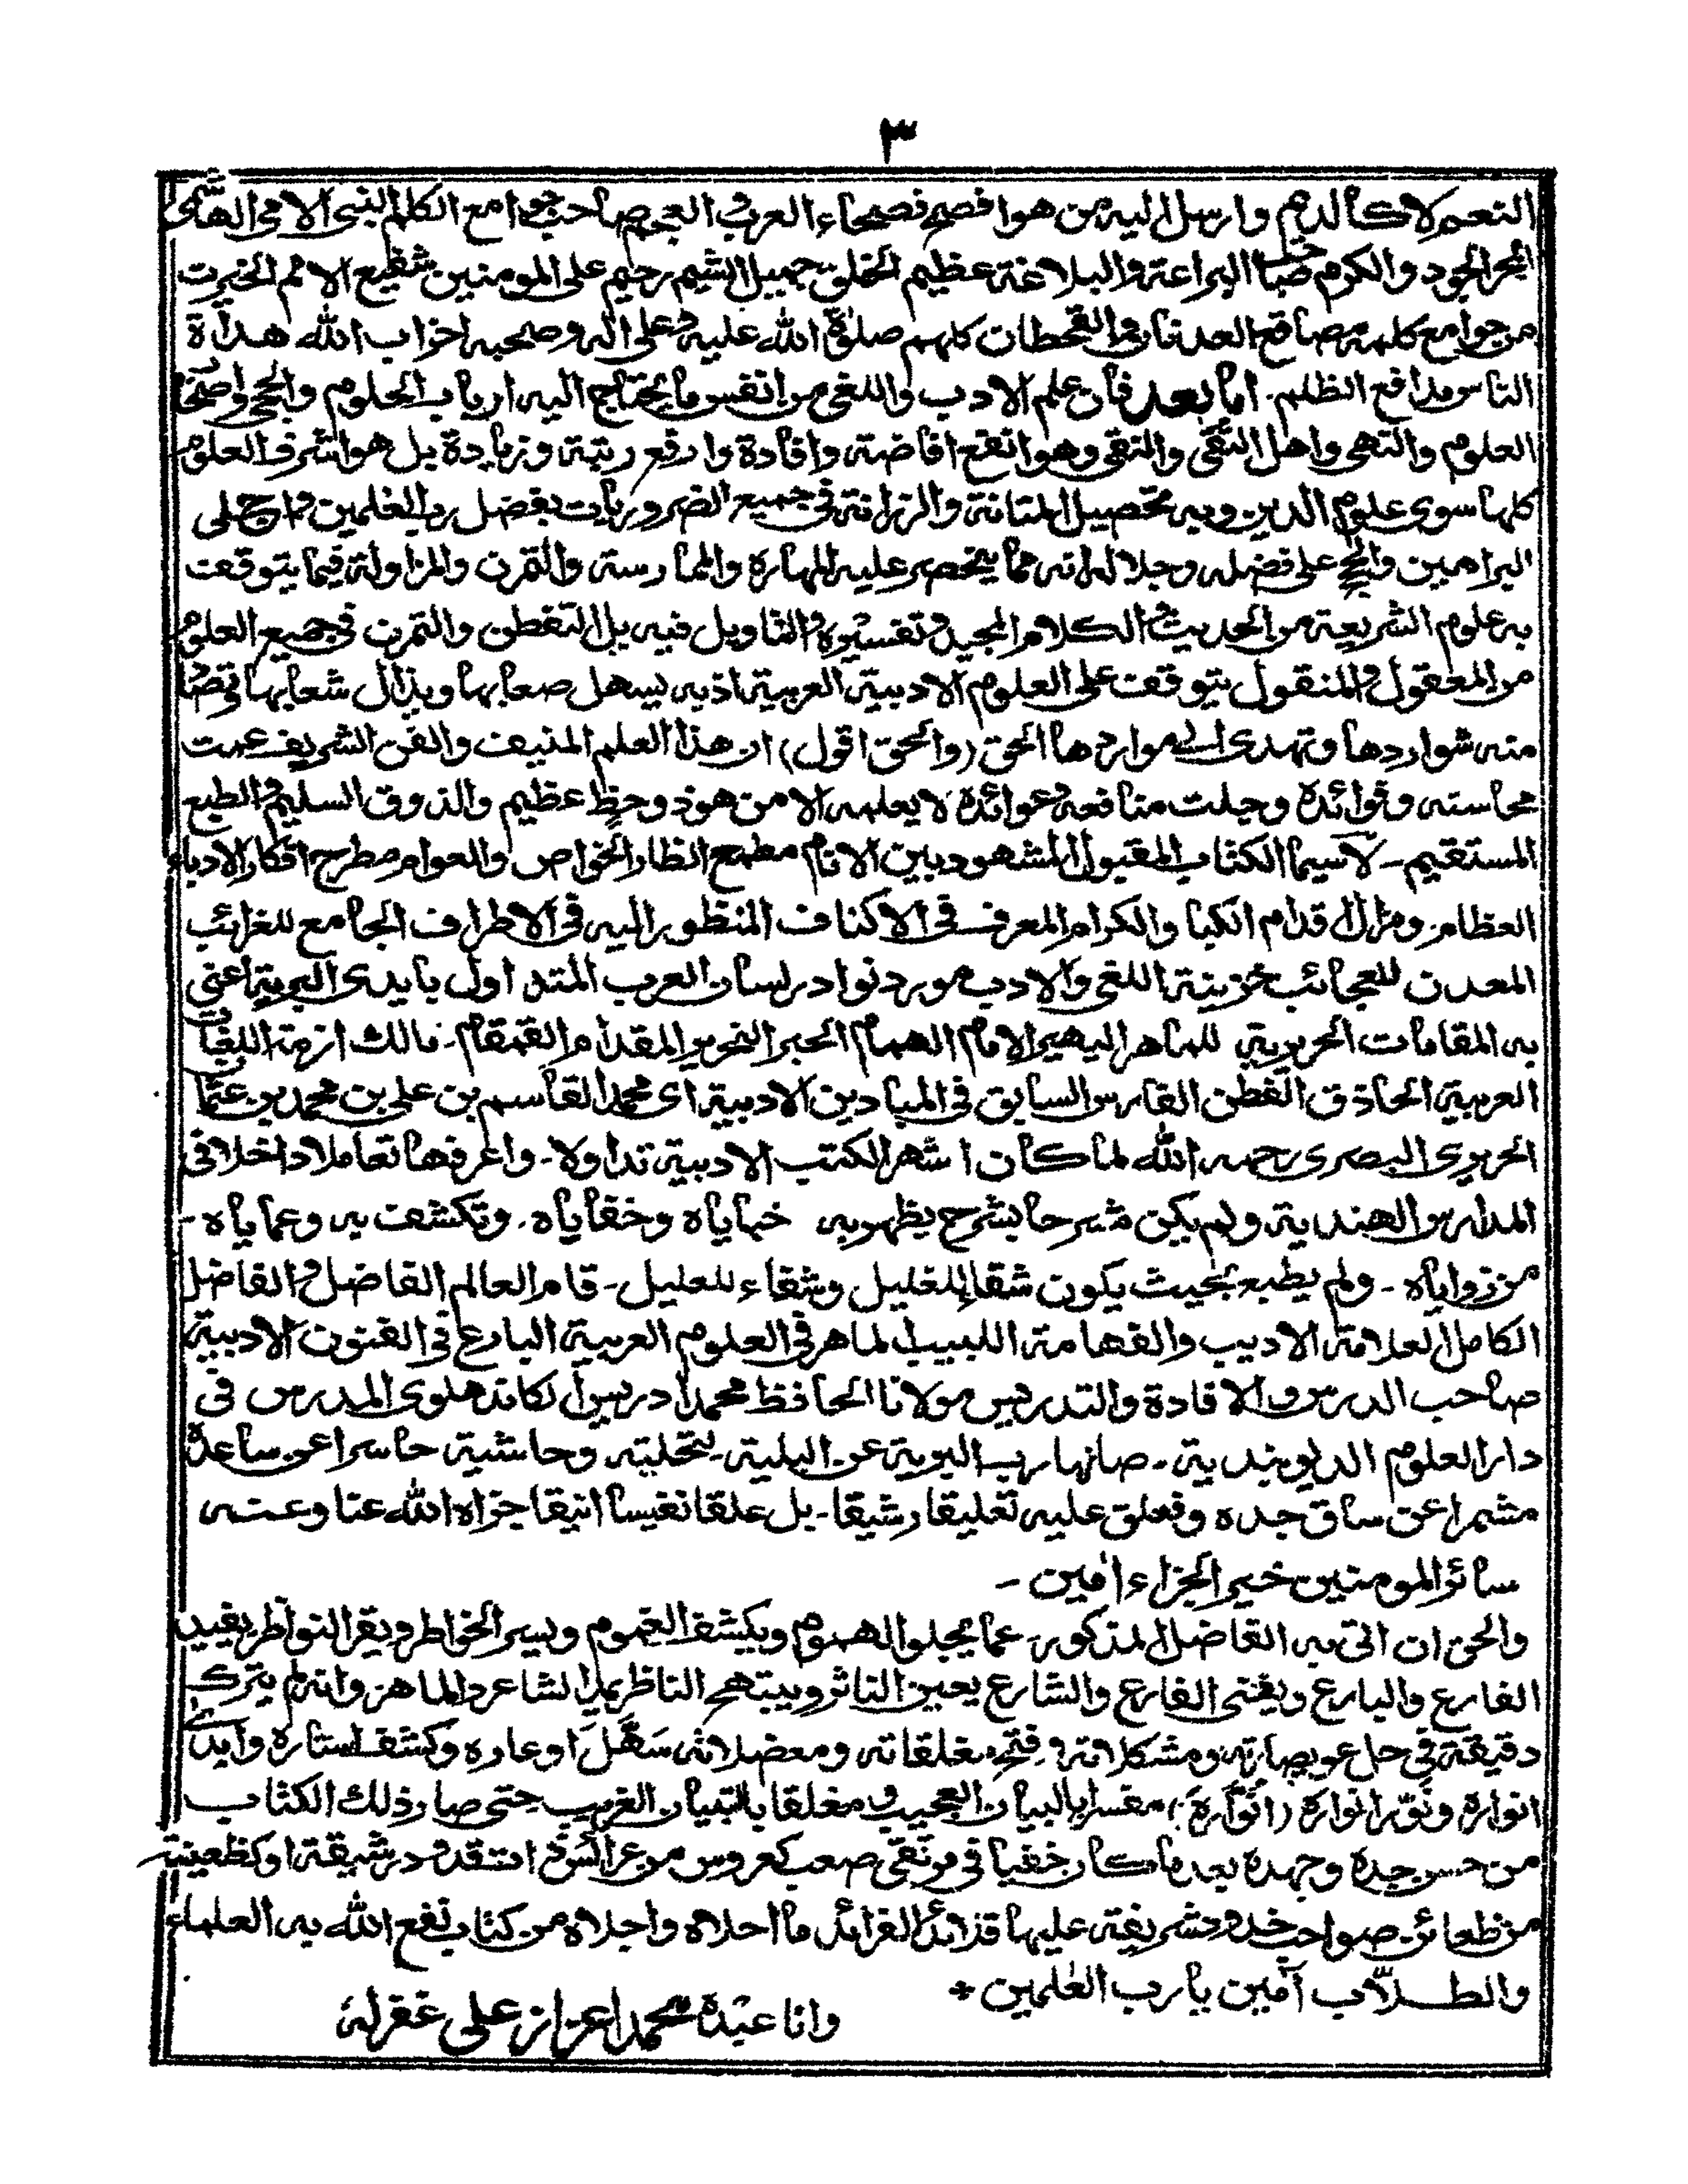 ٣
النعم لا كالدم وارسل اليه من هو افصح فصحاء العرب والعجم صاحب جوامع الكلم النبي الامي الهاشمي
البحر الجود والكرم صاحب البراعة والبلاغة عظيم الخلق جميل الشيم رحيم على المومنين شفيع الامم الخيرت
من جوامع كلمته مصاقع العدنان والقحطان كلهم صلوة الله عليه وعلى اله وصحبه احزاب الله هداة
الناس مدافع الظلم۔ اما بعد فان علم الادب واللغى من انفس ما يحتاج اليه ارباب الحلوم والحجى واصحا
العلوم والنهى واهل التقى والنقى وهو انفع افاضة وافادة وارفع رتبة وزيادة بل هو اشرف العلوم
كلها سوى علوم الدين وبه تحصيل المتانة والرزانة في جميع الضروريات بفضل رب العٰلمين واجلى
البراهين والحج على فضله وجلالته انه مما ينحصر عليه المهارة والممارسة والتمرن والمزاولة فيما يتوقف
به علوم الشريعة من الحديث والكلام المجيد وتفسيره والتاويل فيه بل التفطن والتمرن في جميع العلوم
من المعقول والمنقول يتوقف على العلوم الادبية العربية اذ به يسهل صعابها ويذلل شعابها وتصا
منه شواردها وتهدى الى مواردها الحق (والحق اقول) ان هذا العلم المنيف والفن الشريف عمت
محاسنه وفوائدة وجلت منافعه وعوائدة لا يعلمه الا من هو ذو حظٍ عظيم والذوق السليم والطبع
المستقيم۔ لاسيما الكتاب المقبول المشهود بين الانام مطمع انظار الخواص والعوام مطرح افكار الادباء
العظام۔ ومزال اقدام الكبا والكرام المعرف في الاكناف المنظور اليه في الاطراف الجامع للغرائب
المعدن للعجائب خزينة اللغى والادب مورد نوادر لسان العرب المتداول بايدى البرية اعنى
به المقامات الحريرية للماهر اليهير الامام الهمام الحبر النحرير المقدام القمقام۔ مالك ازمة اللغات
العربية الحاذق الفطن الفارس السابق في الميادين الادبية اى محمد القاسم بن على بن محمد بن عثما
الحريرى البصرى رحمه الله لما كان اشهر الكتب الادبية تداولا۔ واعرفها تعاملا داخلا فى
المدارس الهندية ولم يكن مشرحا بشرح يظهر به خباياه وخفاياه۔ وتكشف به وعماياه۔
من زواياه۔ ولم يطبع بحيث يكون شفاء للغليل وشفاء للعليل۔ قام العالم الفاضل والفاضل
الكامل العلامة الاديب والفهامة اللبيب الماهر في العلوم العربية البارع في الفنون الادبية
صاحب الدرس والافادة والتدريس مولانا الحافظ محمد ادريس الكاندهلوى المدرس في
دار العلوم الديوبندية۔ صانها رب البرية عن البلية۔ لتحليته وحاشية حاسرا عن ساعدة
مشمرا عن ساق جده وفعلق عليه تعليقا رشيقا۔ بل علقا نفيسا انيقا جزاه الله عنا وعن
سائر المومنين خير الجزاء اٰمين۔
والحق ان اتى به الفاضل المذكور۔ عما يجلوا الهموم ويكشف الغموم ويسر الخواطر ويقر النواظر يفيد
الفارع والبارع ويغنى الفارع والشارع يعين الناثر ويبتهج الناظر يمد الشاعر والماهر وانه لم يترك
دقيقة في حل عويصاته ومشكلاته وفتح مغلقاته ومعضلاته سَهَّلَ اوعاره وكشف استاره وابدىٰ
انواره ونَوّر انواره (انوَارَهٗ) مفسرا بالبيان العجيب ومغلقا بالتبيان الغريب حتى صار ذلك الكتاب
من حسن جده وجهده بعد ما كان خفيا في مرتقى صعب كعروس من عرائس ذات قد ودرشيقة او كظعينة
من ظعائن صواحب خدود شريفة عليها قلائد الفرائد ما احلاه واجلاه من كتاب نفع الله به العلماء
والطلّاب آمين يا رب العٰلمين ÷
وانا عبدة محمد اعزاز على غفرلهٗ